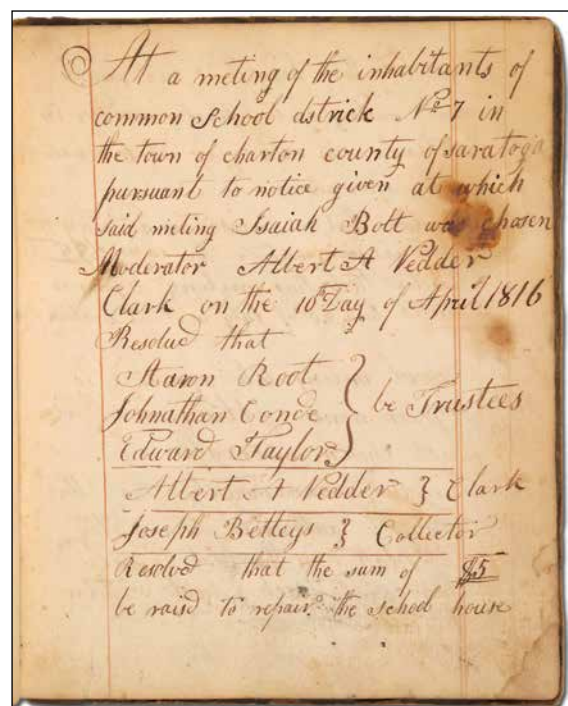 At a meting of the inhabitants of
common School dstrick No 7 in
the town of charton county of saratoga
pursuant to notice given at which
said meting Isaiah Bott was chosen
Moderator Albert A Vedder
Clark on the 10 Day of April 1816
Resolved that
Aaron Root
Johnathan Conde
Edward Taylor
be Trustees
Albert A Vedder } Clark
Joseph Betteys } Collector
Resolved that the sum of $5
be raisd to repair the school house